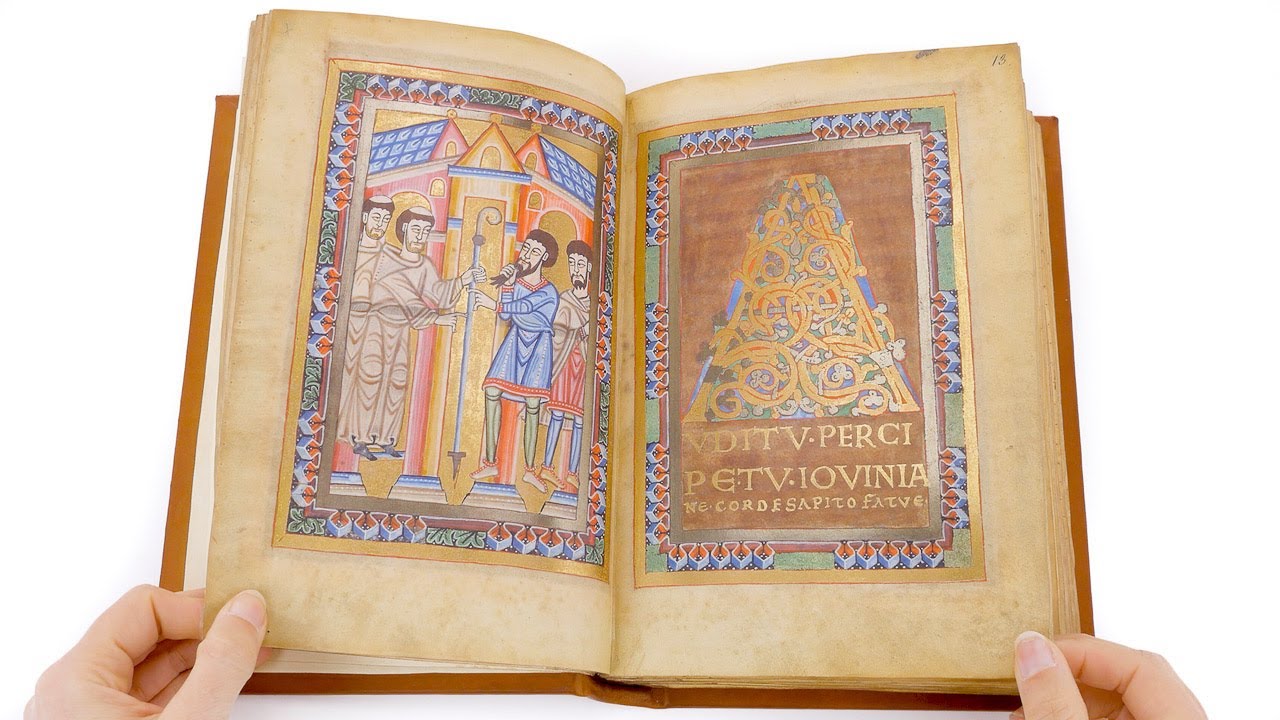 13
A
VDITV·PERCI
PE·TV·IOVINIA
NE·CORDESAPITOFATVE·